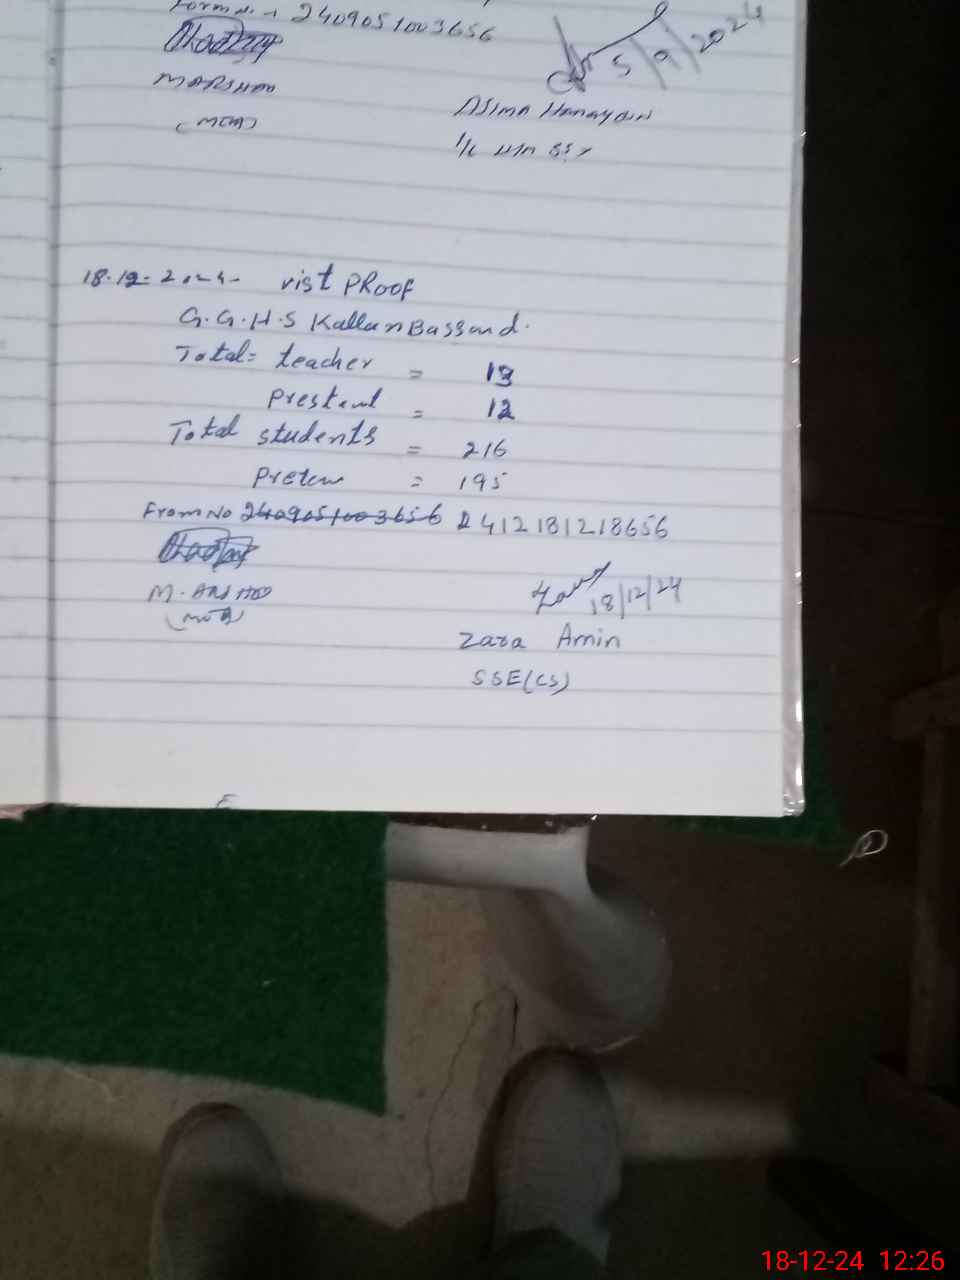 Form No. 2409051003656
5/9/2024
MARSHAD
(MEA)
Asima Hanayain
I/C H/M SS
18.12.2024 vist PRoof
G.G.H.S Kallan Bassand.
Total= teacher = 13
Prestent = 12
Total students = 216
Preten = 195
From No 2409051003656 2412181218656
M. ARSHAD
(MEA)
18/12/24
Zara Amin
SSE(CS)
18-12-24 12:26